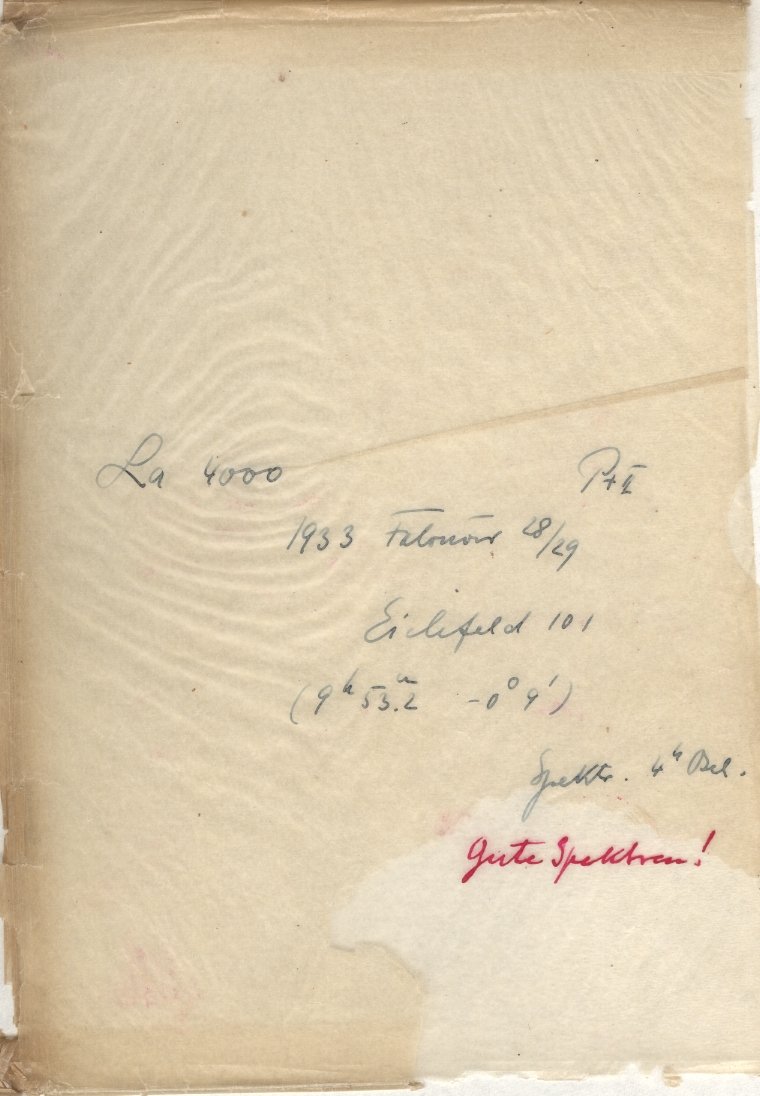 La 4000 Pr II
1933 Februar 28/29
Eichfeld 101
(9ʰ 53.ᵐ2 -0° 9')
Spektr. 4ʰ Bel.
Gute Spektren!